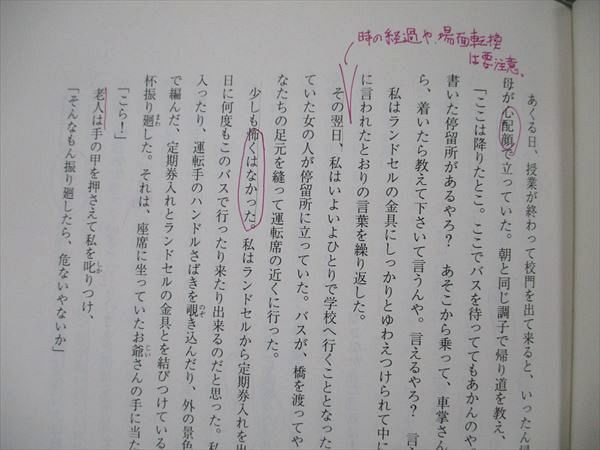 時の経過や、場面転換
は要注意。
あくる日、授業が終わって校門を出て来ると、いったん
母が心配顔で立っていた。朝と同じ調子で帰り道を教え、
「ここは降りたとこ。ここでバスを待っててもあかんのや
書いた停留所があるやろ？　あそこから乗って、車掌さん
ら、着いたら教えて下さいて言うんや。言えるやろ？　言
私はランドセルの金具にしっかりとゆわえつけられて中に
に言われたとおりの言葉を繰り返した。
その翌日、私はいよいよひとりで学校へ行くこととなった
ていた女の人が停留所に立っていた。バスが、橋を渡ってや
なたちの足元を縫って運転席の近くに行った。
少しも怖くはなかった。私はランドセルから定期券入れを出
日に何度もこのバスで行ったり来たり出来るのだと思った。私
入ったり、運転手のハンドルさばきを覗き込んだり、外の景色
で編んだ、定期券入れとランドセルの金具とを結びつけている
杯振り廻した。それは、座席に坐っていたお爺さんの手に当た
「こら！」
老人は手の甲を押さえて私を叱りつけ、
「そんなもん振り廻したら、危ないやないか」